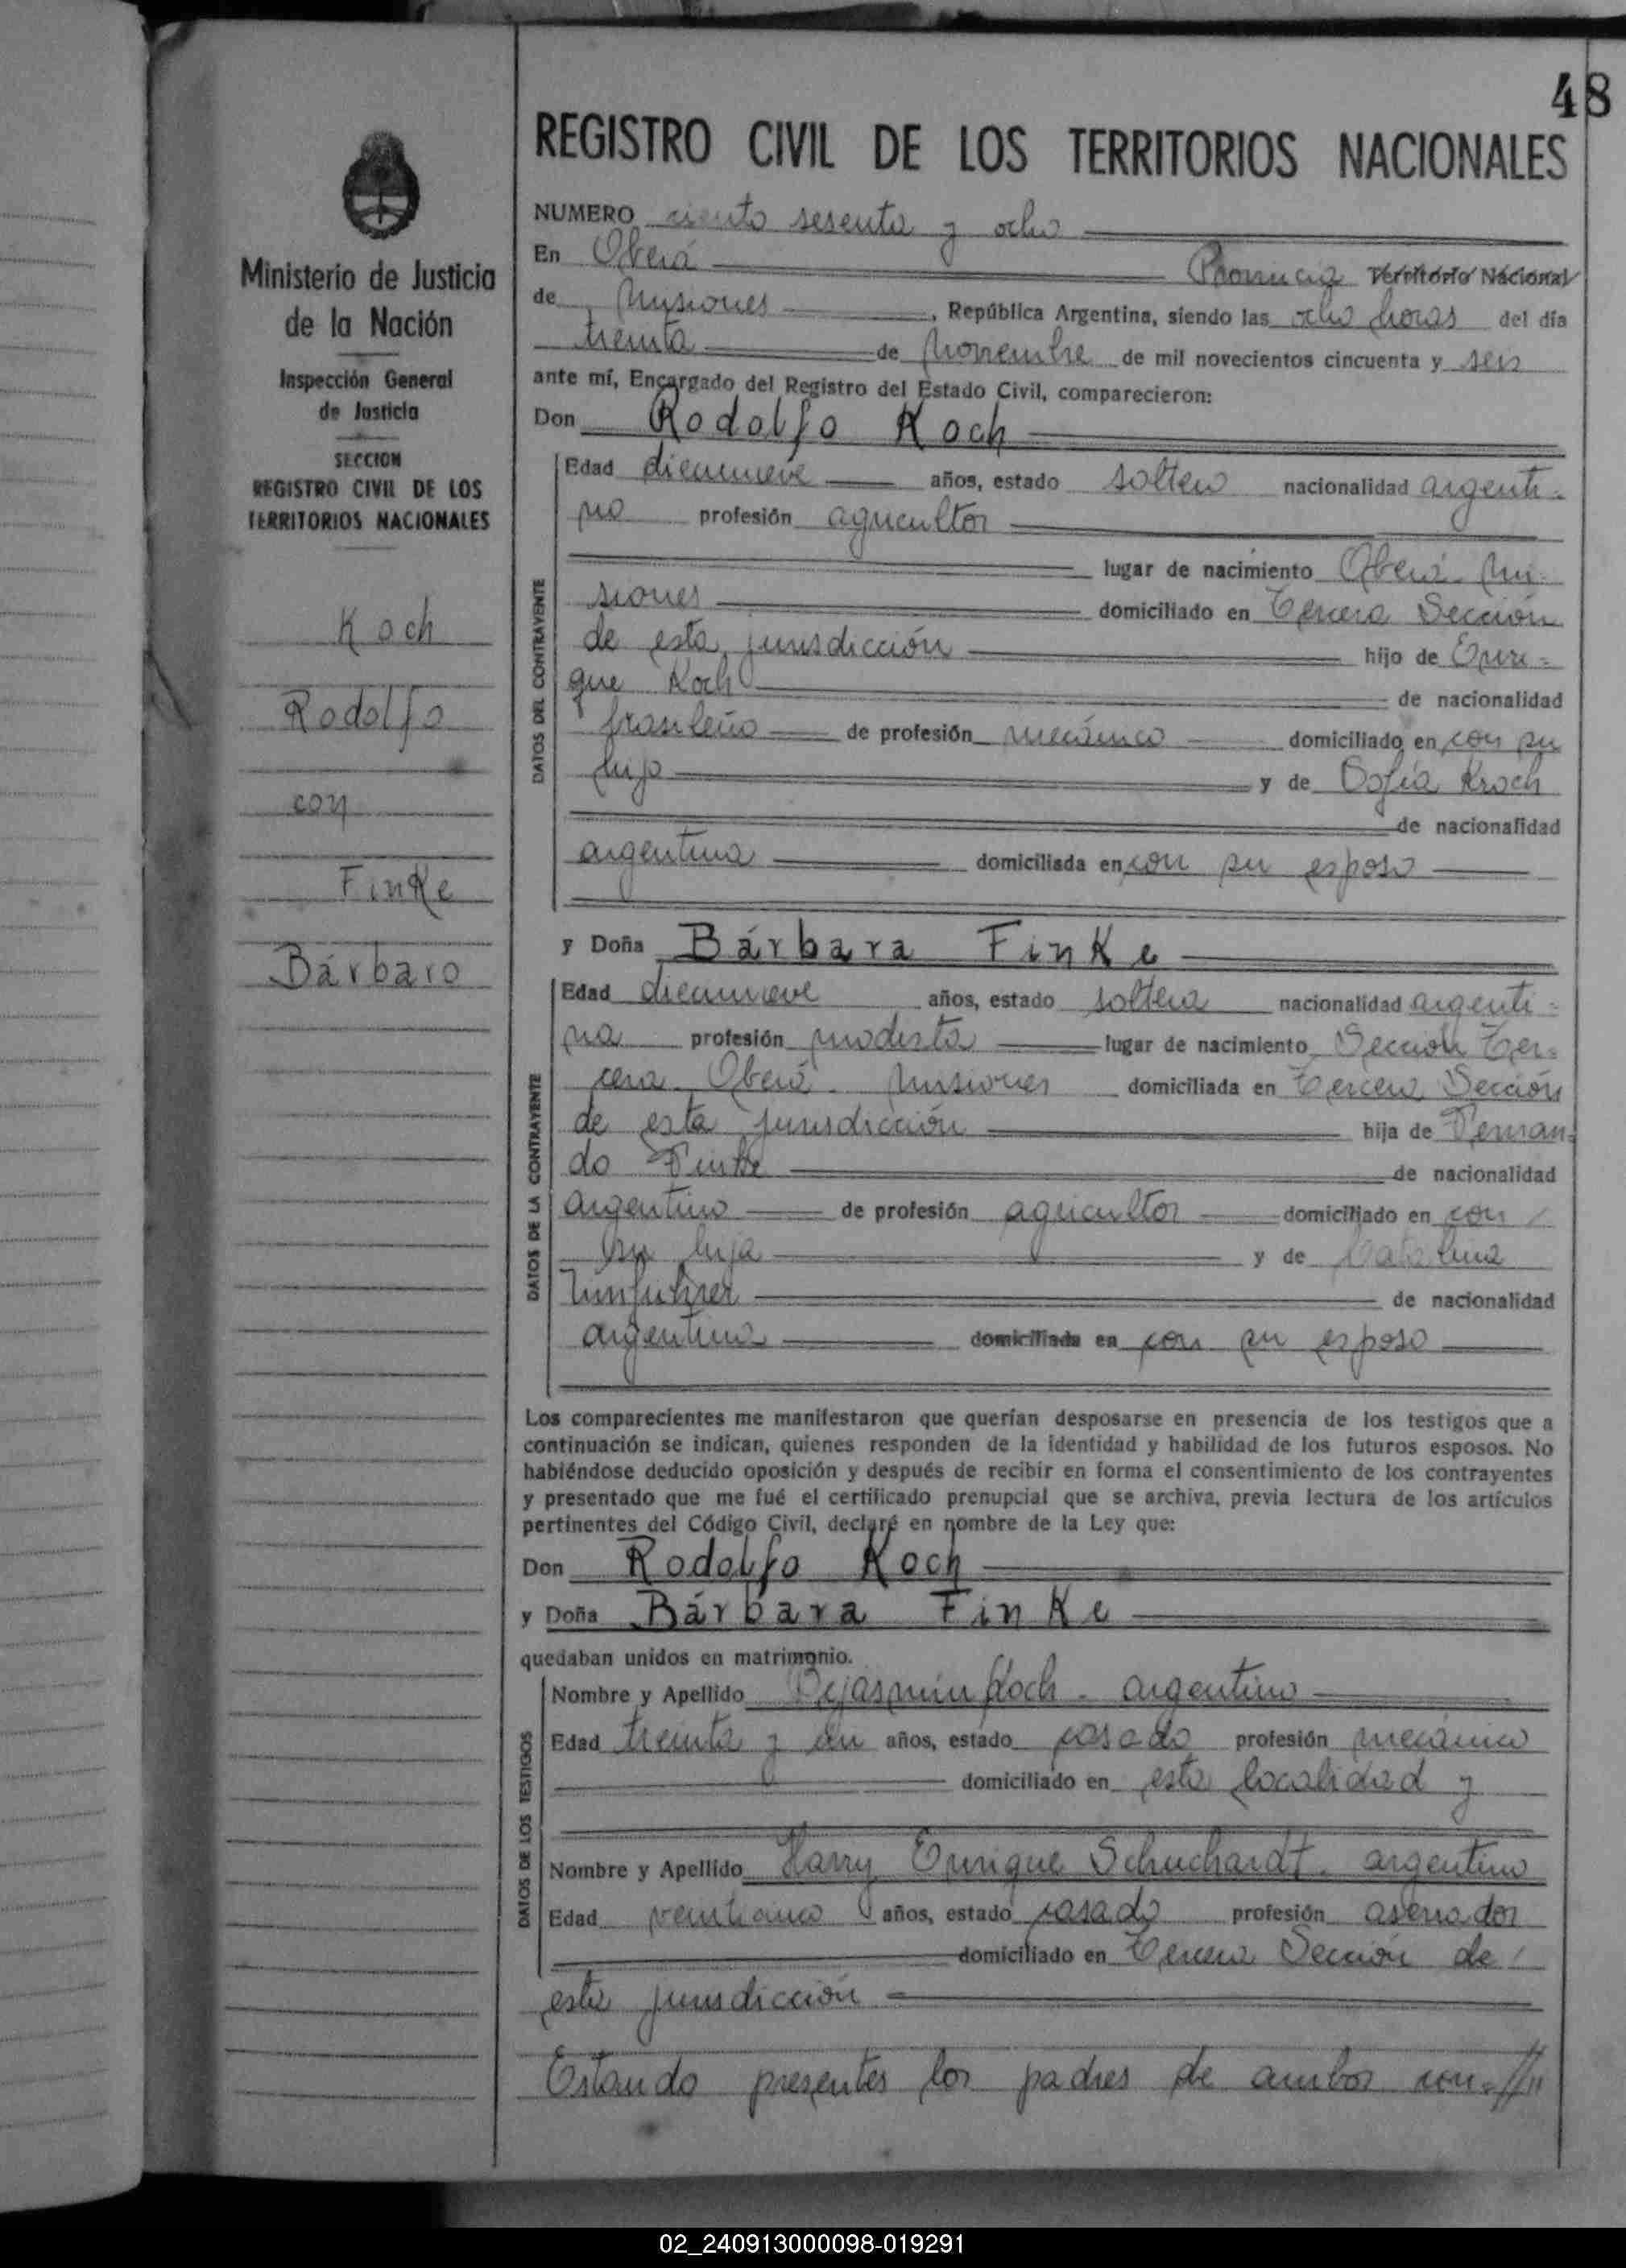 48
REGISTRO CIVIL DE LOS TERRITORIOS NACIONALES
Ministerio de Justicia
de la Nación
Inspección General
de Justicia
SECCION
REGISTRO CIVIL DE LOS
TERRITORIOS NACIONALES
Koch
Rodolfo
con
Finke
Bárbaro
NUMERO ciento sesenta y ocho
En Oberá Provincia Territorio Nacional
de Misiones, República Argentina, siendo las ocho horas del día
treinta de Noviembre de mil novecientos cincuenta y seis
ante mí, Encargado del Registro del Estado Civil, comparecieron:
Don Rodolfo Koch
DATOS DEL CONTRAYENTE
Edad diecinueve años, estado soltero nacionalidad argenti-
no profesión agricultor
lugar de nacimiento Oberá. Mi-
siones domiciliado en Tercera Sección
de esta jurisdicción hijo de Enri-
que Koch de nacionalidad
brasileño de profesión mecánico domiciliado en con su
hijo y de Sofía Kroch
de nacionalidad
argentina domiciliada en con su esposo
y Doña Bárbara Finke
DATOS DE LA CONTRAYENTE
Edad diecinueve años, estado soltera nacionalidad argenti-
na profesión modista lugar de nacimiento Sección Ter-
cera Oberá. Misiones domiciliada en Tercera Sección
de esta jurisdicción hija de Fernan-
do Finke de nacionalidad
argentino de profesión agricultor domiciliado en con
su hija y de Catalina
de nacionalidad
argentina domiciliada en con su esposo
Los comparecientes me manifestaron que querían desposarse en presencia de los testigos que a
continuación se indican, quienes responden de la identidad y habilidad de los futuros esposos. No
habiéndose deducido oposición y después de recibir en forma el consentimiento de los contrayentes
y presentado que me fué el certificado prenupcial que se archiva, previa lectura de los artículos
pertinentes del Código Civil, declaré en nombre de la Ley que:
Don Rodolfo Koch
y Doña Bárbara Finke
quedaban unidos en matrimonio.
DATOS DE LOS TESTIGOS
Nombre y Apellido Koch. argentino
Edad treinta y un años, estado casado profesión mecánico
domiciliado en esta localidad y
Nombre y Apellido Harry Enrique Schuchardt. argentino
Edad años, estado casado profesión aserrador
domiciliado en Tercera Sección de
esta jurisdicción
Estando presentes los padres de ambos con-//
02_240913000098-019291